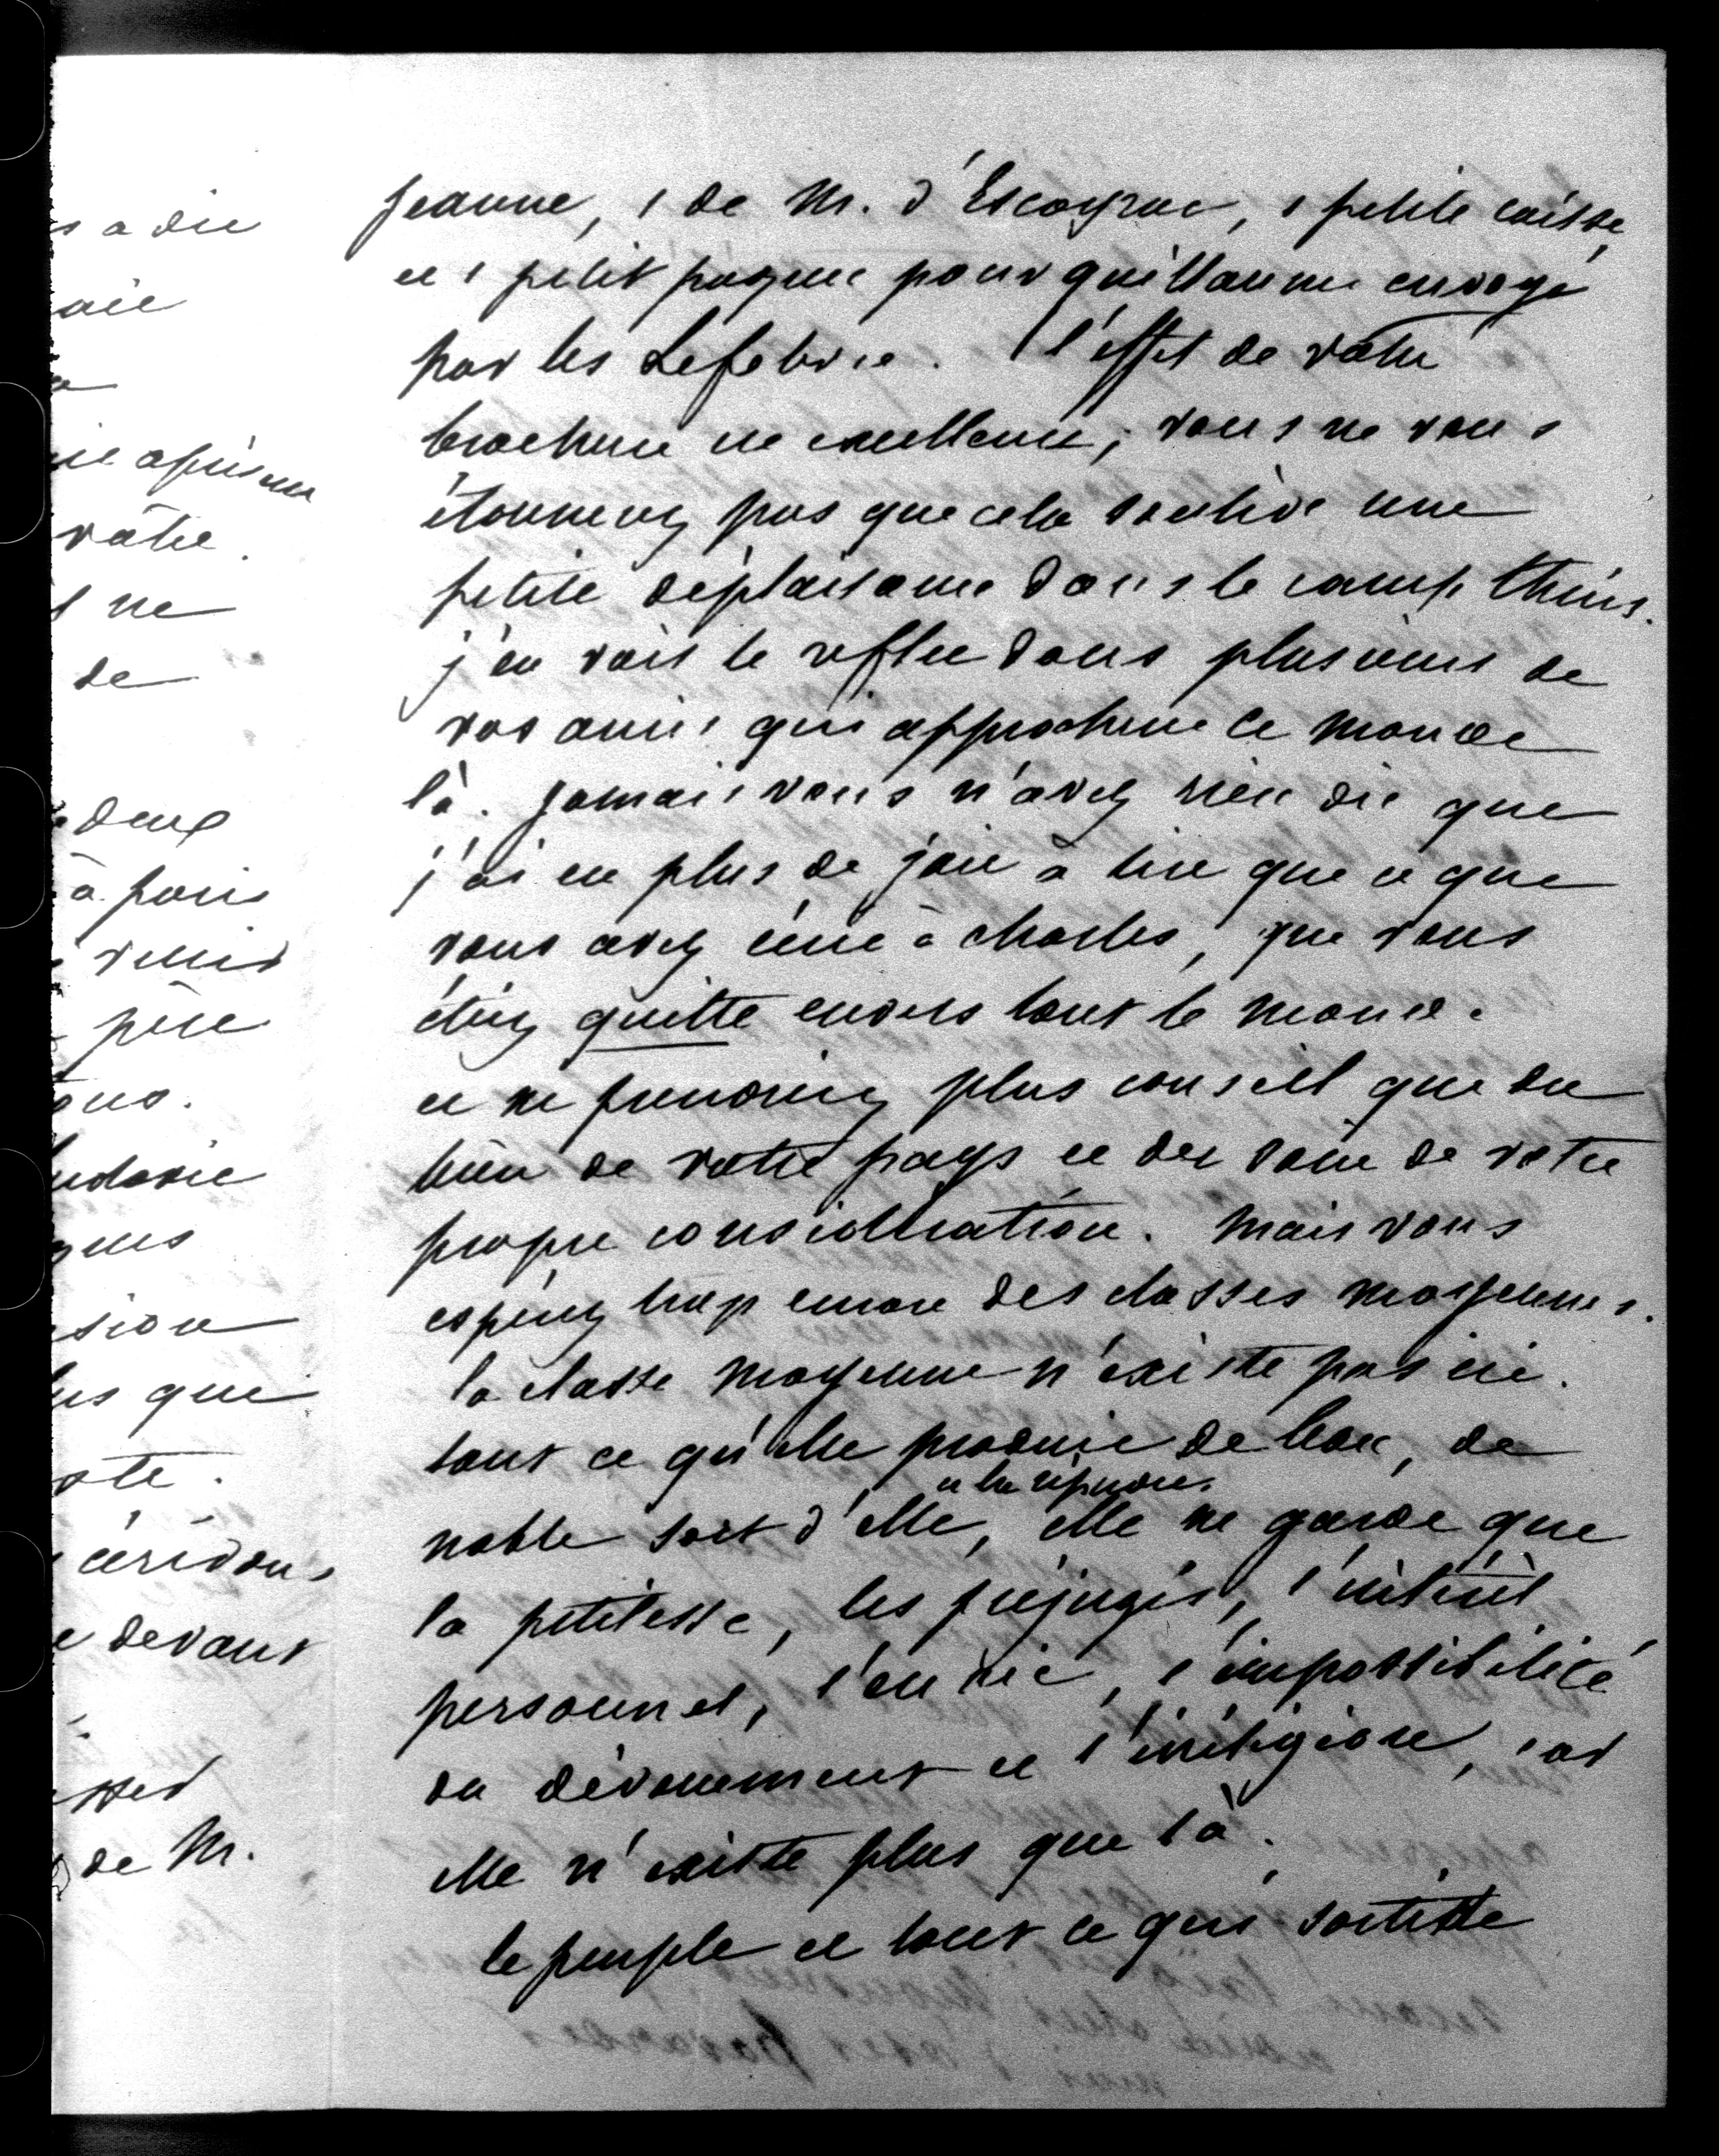 s a dit
ait
ie après une
vôtre.
l ne
de
deux
à paris
venir
père
ous.
udovic
ques
sion
us que
ote.
cérédons
e devant
sser
de M.
Jeanne, 1 de M. d'Escayrac, 1 petite caisse,
et 1 petit paquet pour guillaume envoyé
par les Lefebvre. l'effet de votre
brochure est excellent; vous ne vous
étonnerez pas que cela soulève une
petite déplaisance dans le camp thiers.
j'en vois le reflet dans plusieurs de
vos amis qui approchent ce monde
là. Jamais vous n'avez rien dit que
j'ai eu plus de joie à lire que ce que
vous avez écrit à charles, que vous
étiez quitte envers tout le monde.
et ne prendriez plus conseil que du
bien de votre pays et du soin de votre
propre considération. Mais vous
espérez trop encore des classes moyennes.
la classe moyenne n'existe pas ici.
tout ce qu'elle produit de beau, de
noble sort d'elle, et la répudie. elle ne garde que
la petitesse, les préjugés, l'intérêt
personnel, l'envie, l'impossibilité
du dévouement et l'irréligion, car
elle n'existe plus que là.
le peuple et tout ce qui sortit de